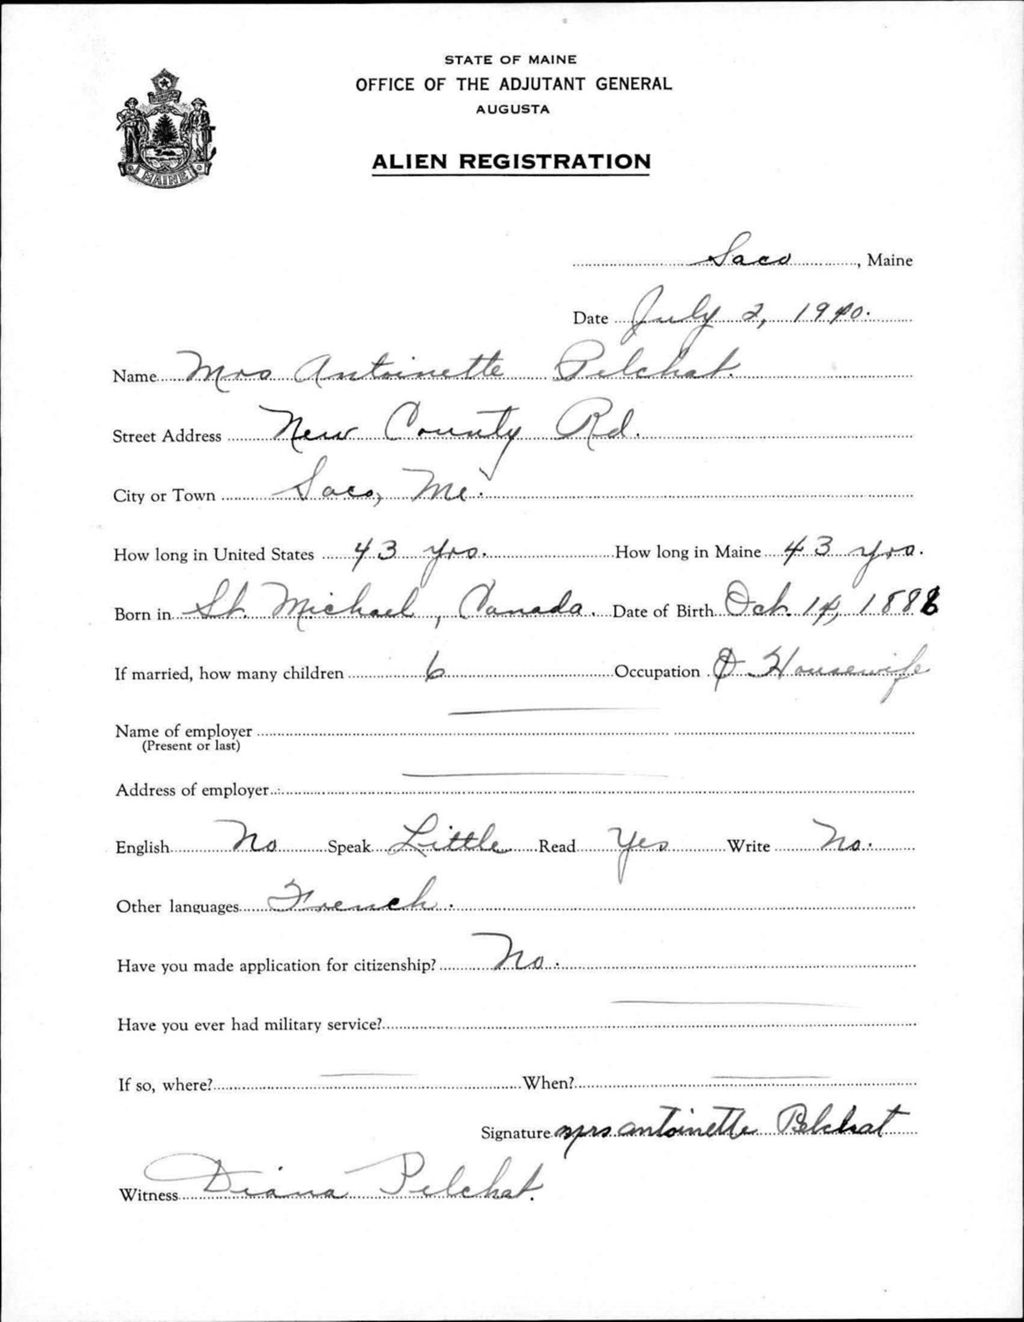 STATE OF MAINE
OFFICE OF THE ADJUTANT GENERAL
AUGUSTA
ALIEN REGISTRATION
MAINE
Saco, Maine
Date July 2, 1940.
Name Mrs Antoinette Pelchat.
Street Address New County Rd.
City or Town Saco, Me.
How long in United States 43 yrs. How long in Maine 43 yrs.
Born in St. Michael, Canada. Date of Birth Oct. 14, 1888
If married, how many children 6 Occupation Housewife
Name of employer
(Present or last)
Address of employer
English No Speak Little Read Yes Write No.
Other languages French.
Have you made application for citizenship? No.
Have you ever had military service?
If so, where? When?
Signature Mrs Antoinette Pelchat
Witness Diana Pelchat.